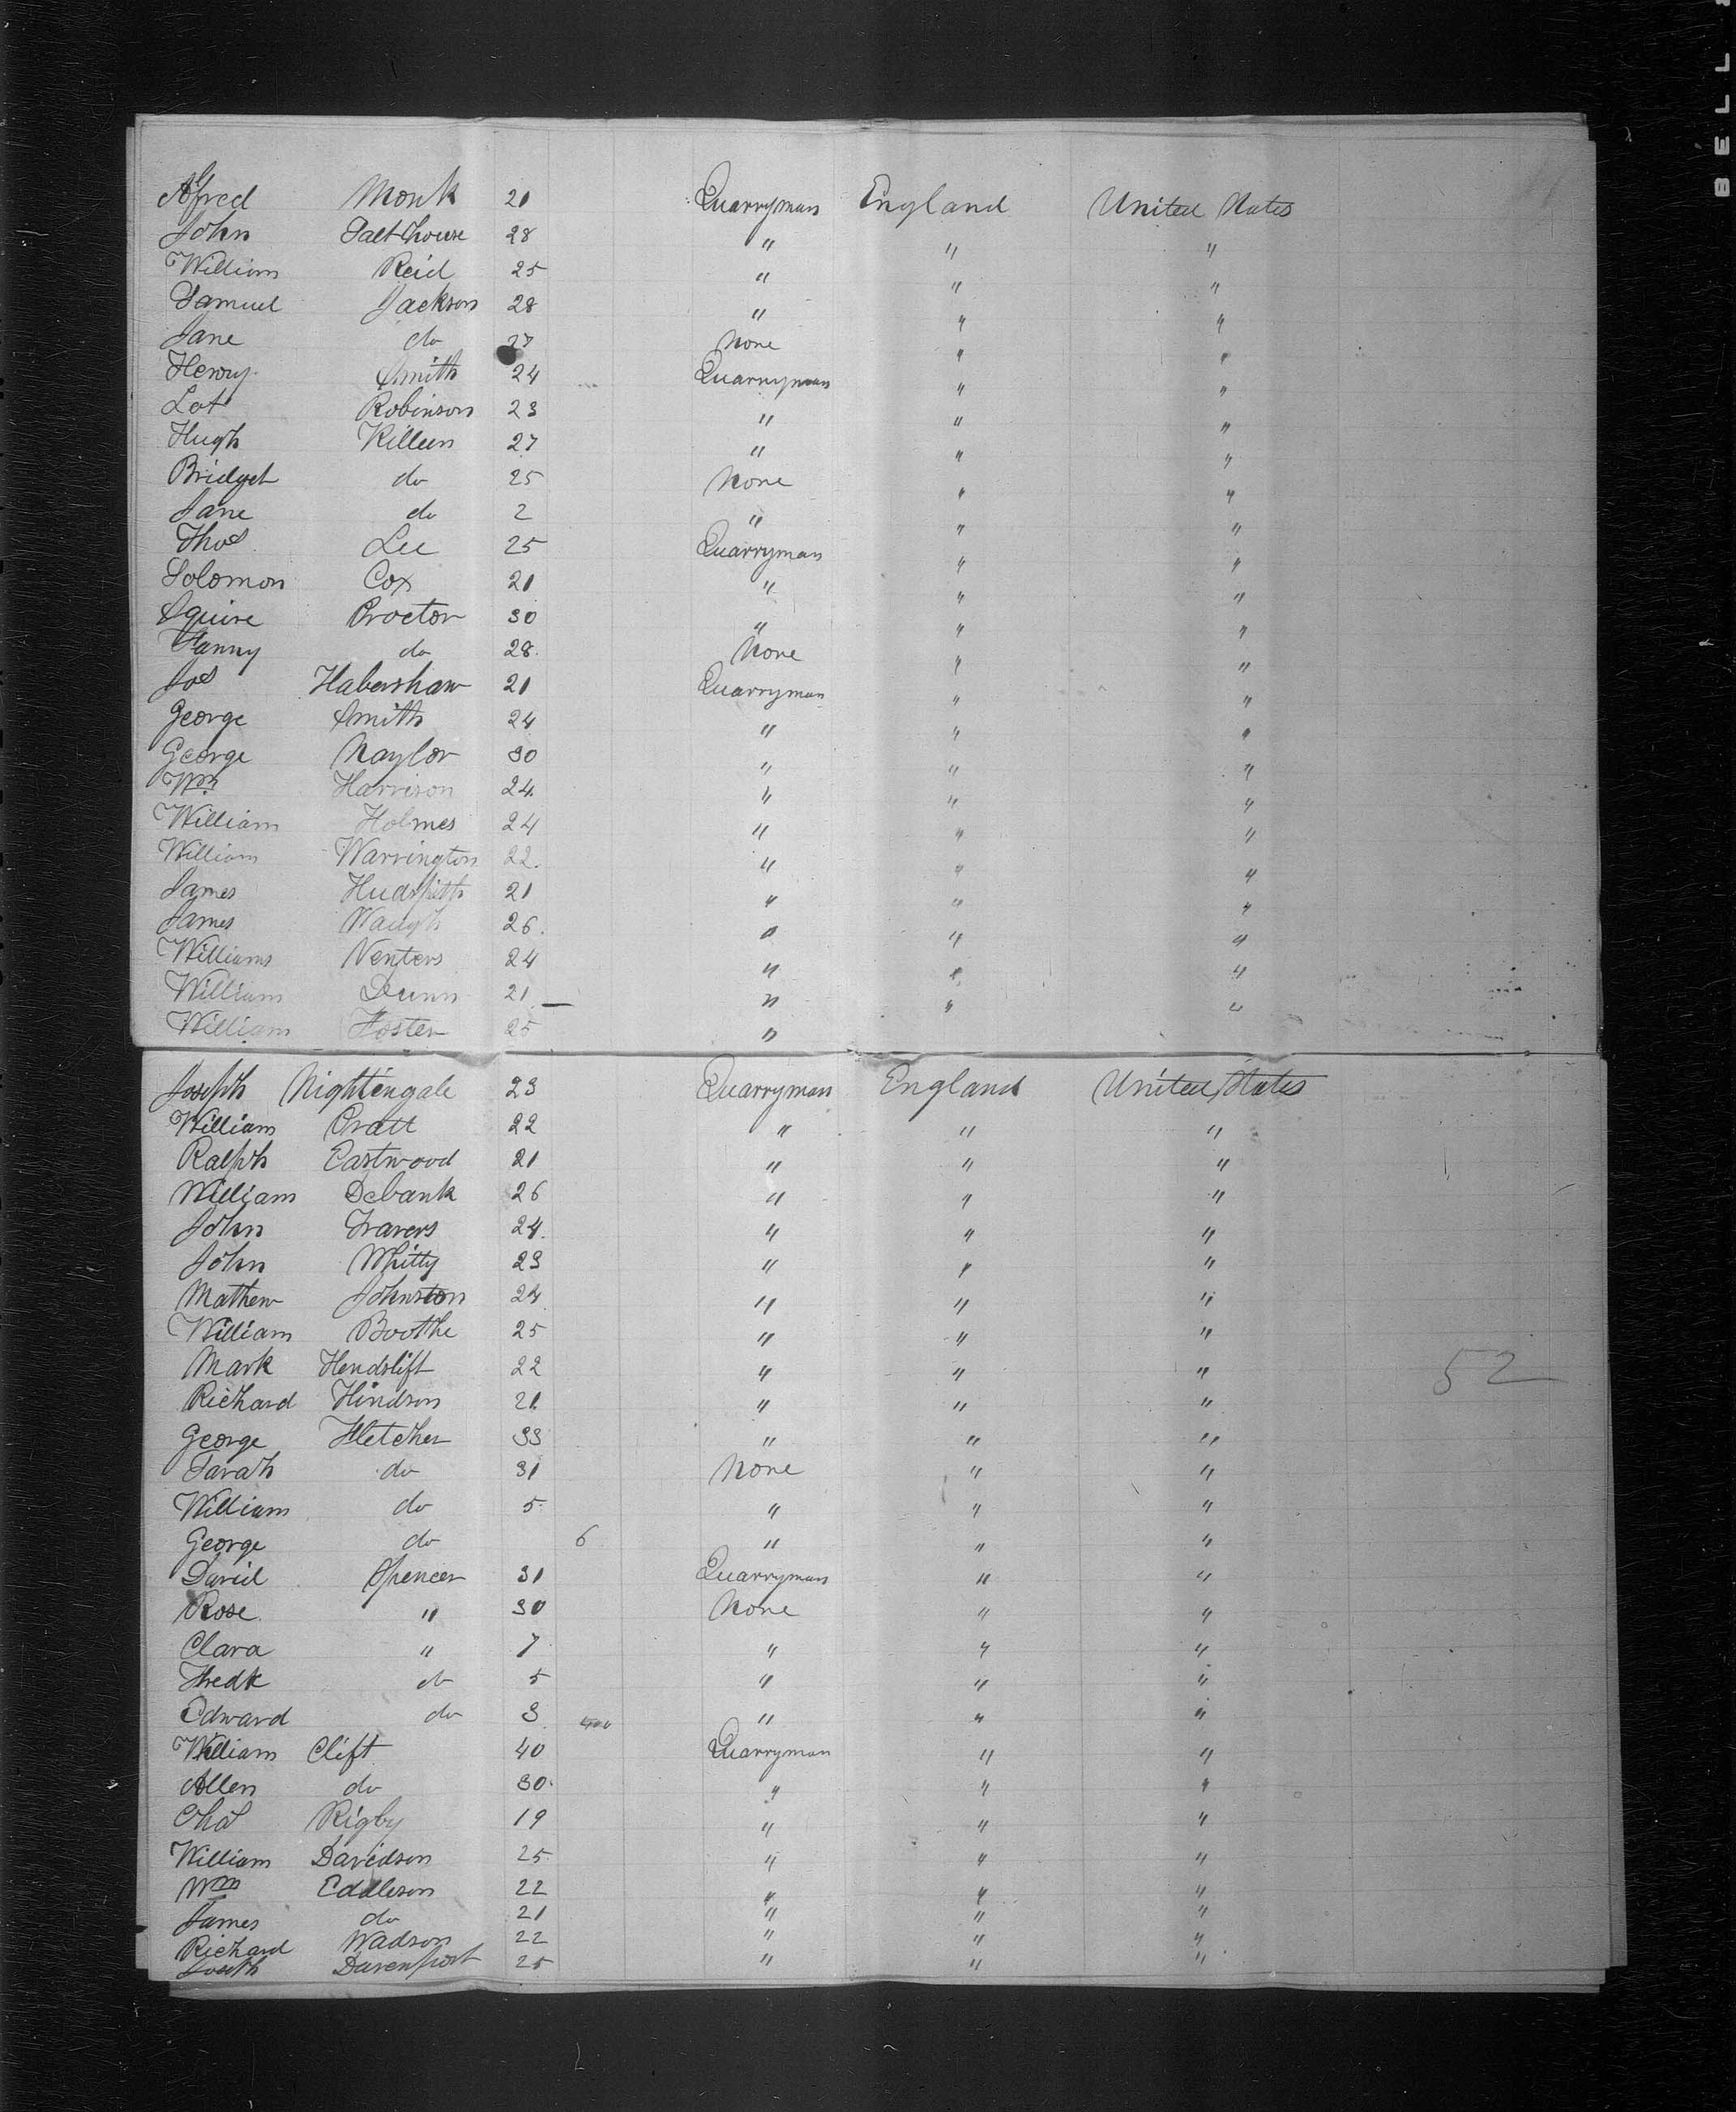 Alfred Monk 21 Quarryman England United States
John Salthouse 28 " " "
William Reid 25 " " "
Samuel Jackson 28 " " "
Jane do 27 None " "
Henry Smith 24 Quarryman " "
Lot Robinson 23 " " "
Hugh Killeen 27 " " "
Bridget do 25 None " "
Jane do 2 " " "
Thos Lee 25 Quarryman " "
Solomon Cox 21 " " "
Squire Proctor 30 " " "
Fanny do 28 None " "
Jos Habershaw 21 Quarryman " "
George Smith 24 " " "
George Naylor 30 " " "
Wm Harrison 24 " " "
William Holmes 24 " " "
William Warrington 22 " " "
James Hudspith 21 " " "
James Waugh 26 " " "
William Venters 24 " " "
William Dunn 21 " " "
William Foster 25 "
Joseph Nightingale 23 Quarryman England United States
William Pratt 22 " " "
Ralph Eastwood 21 " " "
William Debank 26 " " "
John Travers 24 " " "
John Whitty 23 " " "
Mathew Johnston 24 " " "
William Boothe 25 " " "
Mark Hendslift 22 " " "
52
Richard Hindson 21 " " "
George Fletcher 33 " " "
Sarah do 31 None " "
William do 5 " " "
George do 6 " " "
David Spencer 31 Quarryman " "
Rose " 30 None " "
Clara " 7 " " "
Fredk do 5 " " "
Edward do 3 " " "
William Clift 40 Quarryman " "
Allen do 30 " " "
Chas Rigby 19 " " "
William Davidson 25 " " "
Wm Eddleson 22 " " "
James do 21 " " "
Richard Wadson 22 " " "
Davenport 25 " " "
BELL